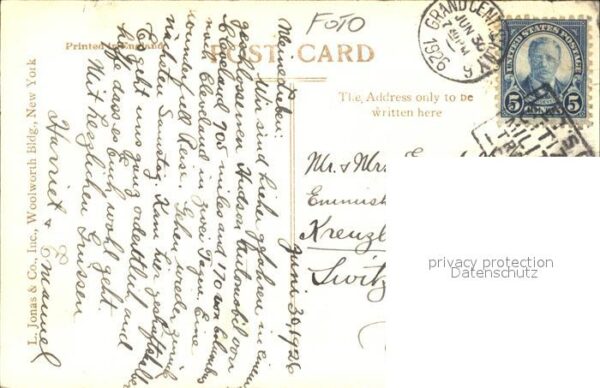 FOTO
Printed in England
POST CARD
The Address only to be
written here
GRAND CENTRAL
JUN 30
1926
UNITED STATES POSTAGE
5 CENTS 5
Mr. & Mrs.
Kreuzl
Switz
privacy protection
Datenschutz
L. Jonas & Co., Inc., Woolworth Bldg., New York
Juni 30, 1926
Meine Lieben:
Wir sind hierher gefahren in einem
geschlossenen Hudson Automobil von
Cleveland 705 miles and 170 von Columbus
nach Cleveland in zwei Tagen. Eine
wundervolle Reise. Gehen wieder zurück
nächsten Samstag. Kam hier geschäftshalber
Es geht uns ganz ordentlich und
hoffe dass es Euch wohl geht.
Mit herzlichen Grüssen
Harriet & Emanuel